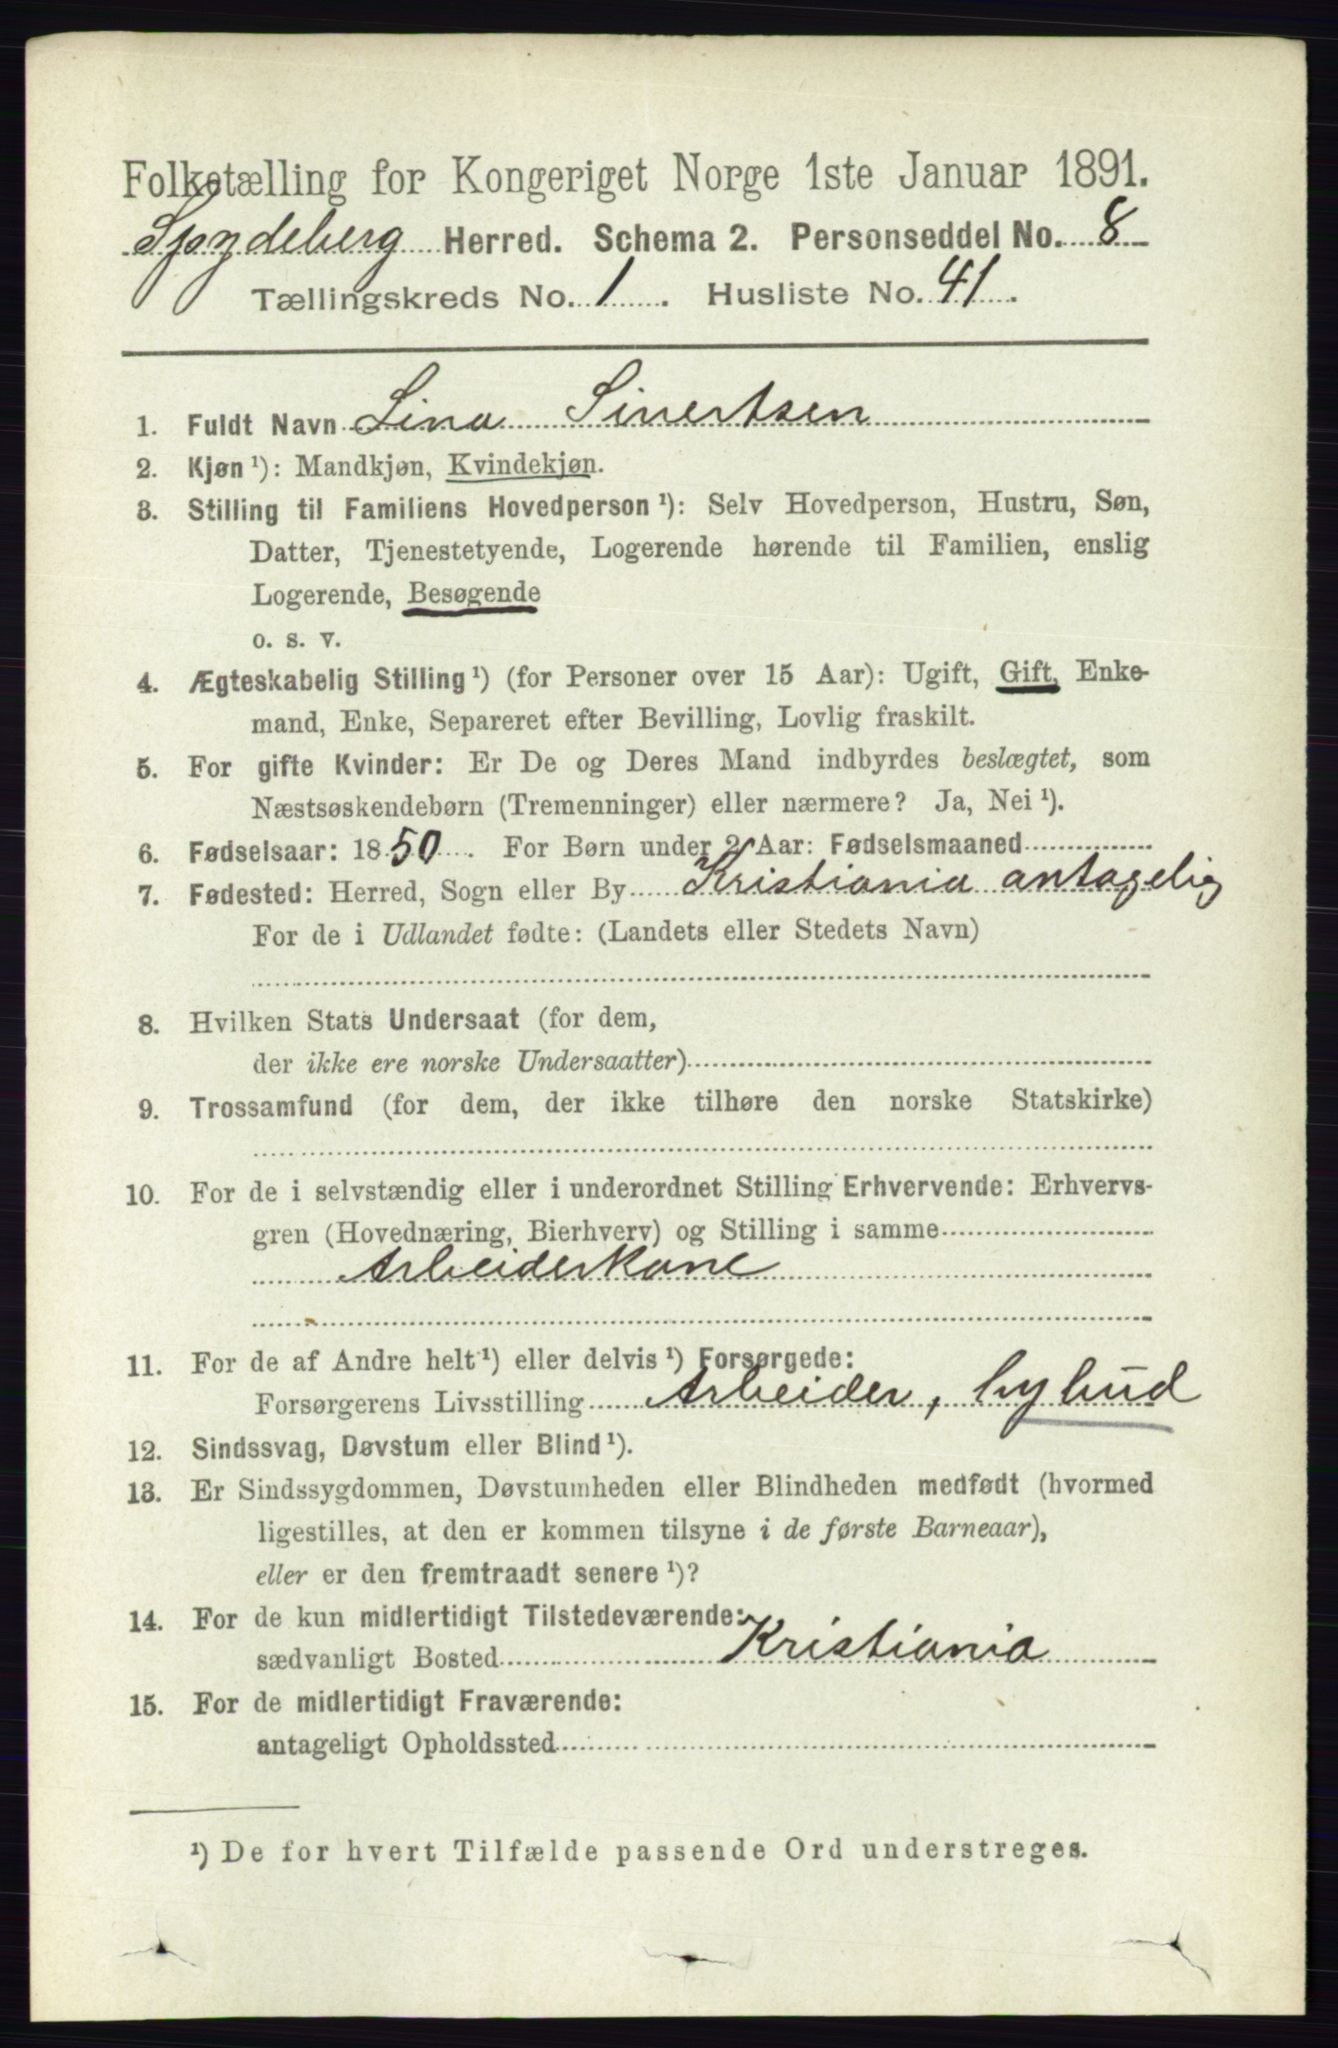 Folketælling for Kongeriget Norge 1ste Januar 1891.
Spydeberg Herred. Schema 2. Personseddel No. 8
Tællingskreds No. 1. Husliste No. 41.
1. Fuldt Navn Lina Sivertsen
2. Kjøn ¹): Mandkjøn, Kvindekjøn.
3. Stilling til Familiens Hovedperson ¹): Selv Hovedperson, Hustru, Søn,
Datter, Tjenestetyende, Logerende hørende til Familien, enslig
Logerende, Besøgende
o. s. v.
4. Ægteskabelig Stilling ¹) (for Personer over 15 Aar): Ugift, Gift, Enke-
mand, Enke, Separeret efter Bevilling, Lovlig fraskilt.
5. For gifte Kvinder: Er De og Deres Mand indbyrdes beslægtet, som
Næstsøskendebørn (Tremenninger) eller nærmere? Ja, Nei ¹).
6. Fødselsaar: 1850. For Børn under 2 Aar: Fødselsmaaned
7. Fødested: Herred, Sogn eller By Kristiania antagelig
For de i Udlandet fødte: (Landets eller Stedets Navn)
8. Hvilken Stats Undersaat (for dem,
der ikke ere norske Undersaatter)
9. Trossamfund (for dem, der ikke tilhøre den norske Statskirke)
10. For de i selvstændig eller i underordnet Stilling Erhvervende: Erhvervs-
gren (Hovednæring, Bierhverv) og Stilling i samme
Arbeiderkone
11. For de af Andre helt ¹) eller delvis ¹) Forsørgede:
Forsørgerens Livsstilling Arbeider, bybud
12. Sindssvag, Døvstum eller Blind ¹).
13. Er Sindssygdommen, Døvstumheden eller Blindheden medfødt (hvormed
ligestilles, at den er kommen tilsyne i de første Barneaar),
eller er den fremtraadt senere ¹)?
14. For de kun midlertidigt Tilstedeværende:
sædvanligt Bosted Kristiania
15. For de midlertidigt Fraværende:
antageligt Opholdssted
¹) De for hvert Tilfælde passende Ord understreges.